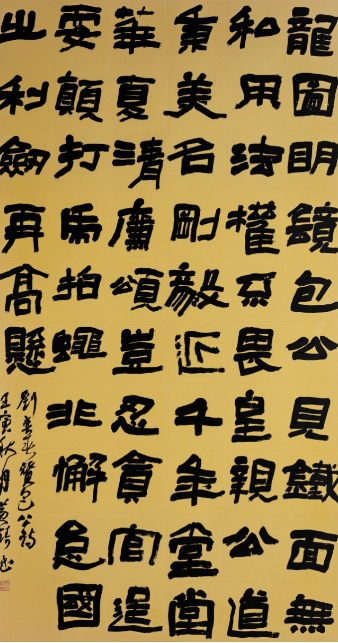 龍圖明鏡包公見鐵面無
私用法權不畏皇親公道
秉美名剛毅近千年堂堂
華夏清廉頌豈忍貪官逞
耍顛打虎拍蠅非懈怠國
之利劍再高懸
壬寅秋月